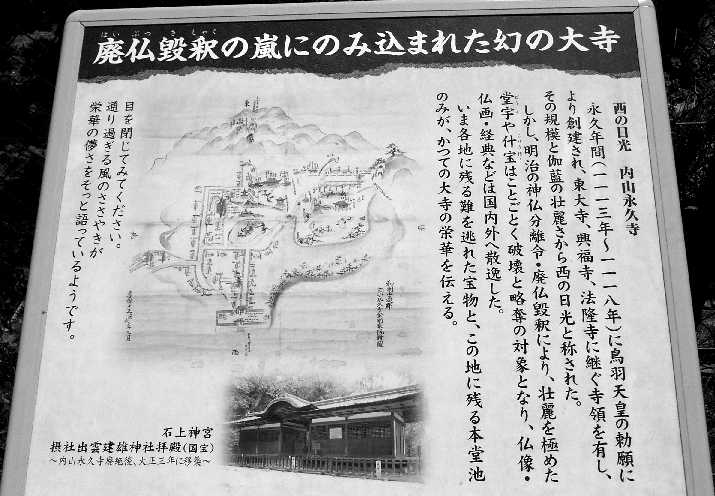 はいぶつきしゃく
廃仏毀釈の嵐にのみ込まれた幻の大寺
西の日光　内山永久寺
永久年間(一一一三年～一一一八年)に鳥羽天皇の勅願に
より創建され、東大寺、興福寺、法隆寺に継ぐ寺領を有し、
その規模と伽藍の壮麗さから西の日光と称された。
しかし、明治の神仏分離令・廃仏毀釈により、壮麗を極めた
堂宇や什宝はことごとく破壊と略奪の対象となり、仏像・
仏画・経典などは国内外へ散逸した。
いま各地に残る難を逃れた宝物と、この地に残る本堂池
のみが、かつての大寺の栄華を伝える。
目を閉じてみてください。
通り過ぎる風のささやきが
栄華の儚さをそっと語っているようです。
石上神宮
摂社出雲建雄神社拝殿(国宝)
～内山永久寺廃絶後、大正三年に移築～